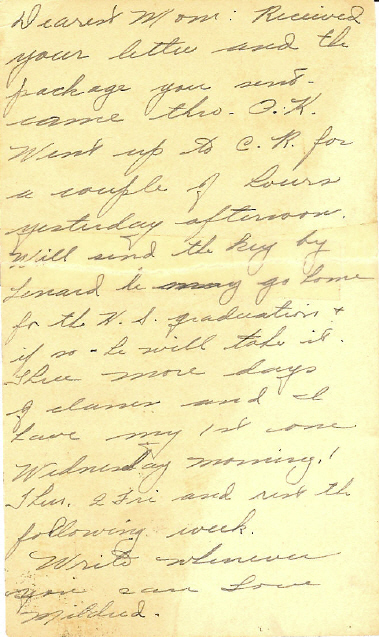 Dearest Mom: Received
your letter and the
package you sent-
came thro- O.K.
Went up to C. R. for
a couple of hours
yesterday afternoon.
Will send the key by
Lenard he may go home
for the H. S. graduation +
if so - he will take it.
Three more days
of classes and I
have my 1st one
Wednesday morning!
Thur. 2 Fri and rest the
following week.
Write whenever
you can Love
Mildred.